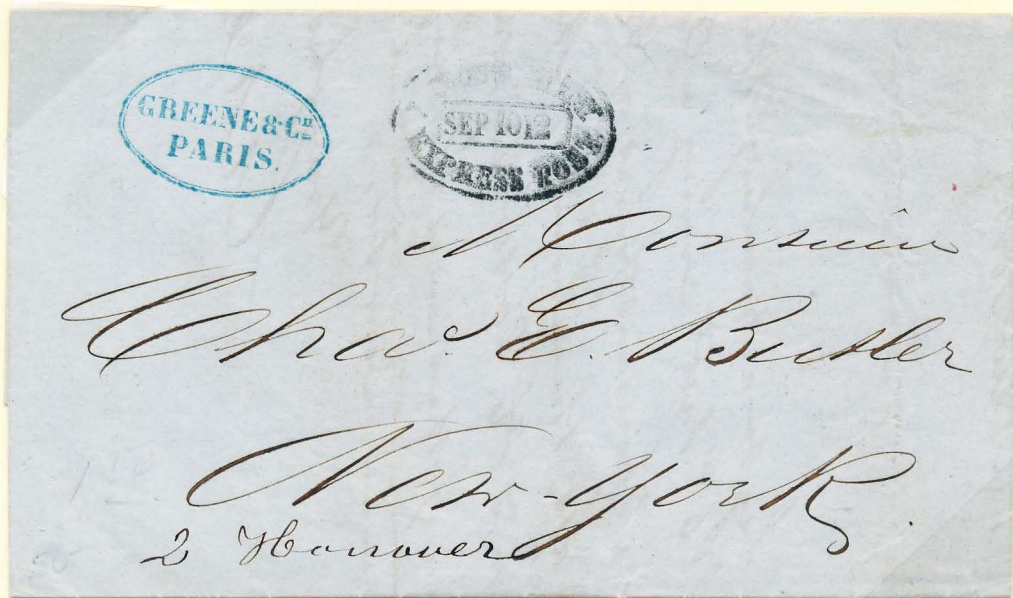 GREENE & Co
PARIS.
SEP 10 12
EXPRESS POST
Monsieur
Chas. E. Butler
New-York.
2 Hanover